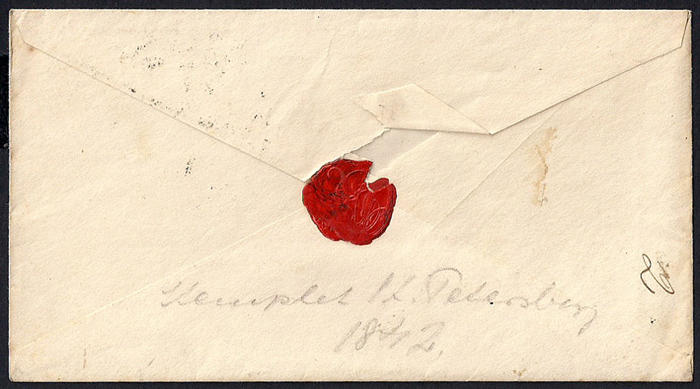 Stemplet St. Petersberg
1842.